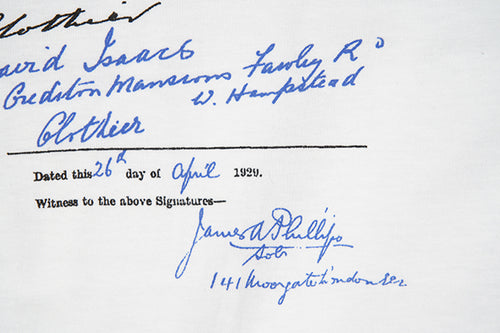 Clothier
David Isaacs
Crediton Mansions Fawley Rd
W. Hampstead
Clothier
Dated this 26th day of April 1929.
Witness to the above Signatures—
James A Phillips
Solr
141 Moorgate London EC2